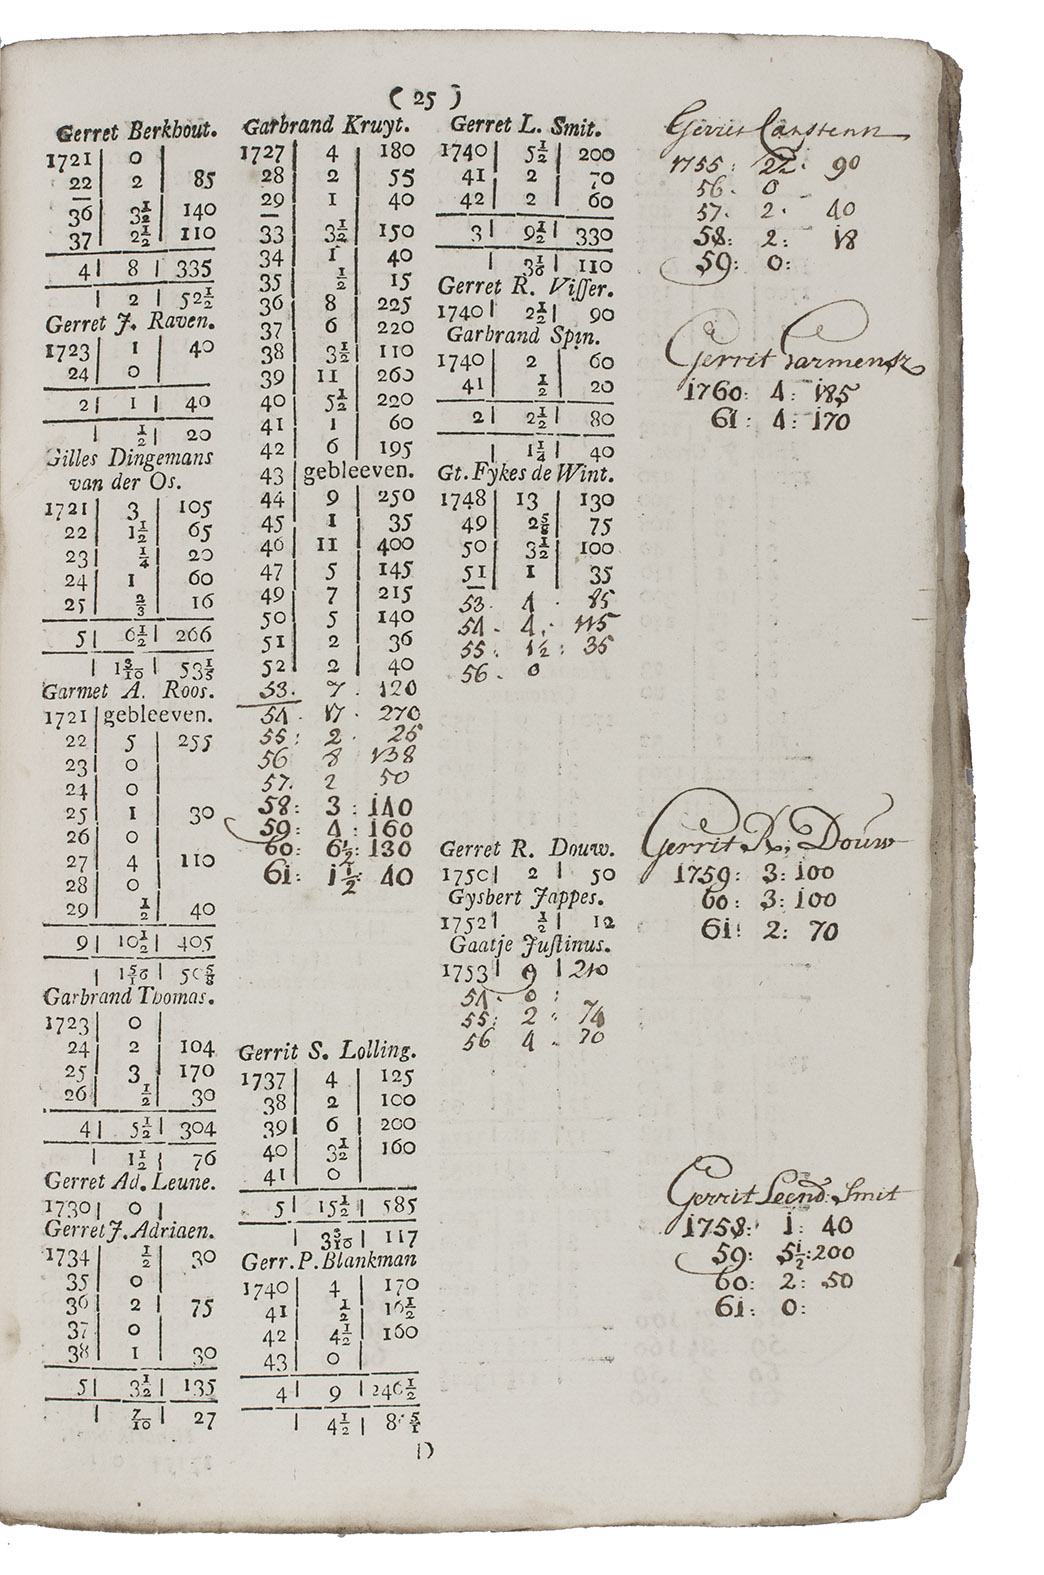 ( 25 )
Gerret Berkhout.
1721 | 0 |
22 | 2 | 85
—
36 | 3½ | 140
37 | 2½ | 110
4 | 8 | 335
| 2 | 52½
Gerret J. Raven.
1723 | 1 | 40
24 | 0 |
2 | 1 | 40
| ½ | 20
Gilles Dingemans
van der Os.
1721 | 3 | 105
22 | 1½ | 65
23 | ¼ | 20
24 | 1 | 60
25 | ⅔ | 16
5 | 6½ | 266
| 1 3/10 | 53⅕
Garmet A. Roos.
1721 | gebleeven.
22 | 5 | 255
23 | 0
24 | 0
25 | 1 | 30
26 | 0
27 | 4 | 110
28 | 0
29 | ½ | 40
9 | 10½ | 405
Garbrand Thomas.
1723 | 0 |
24 | 2 | 104
25 | 3 | 170
26 | ½ | 30
4 | 5½ | 304
| 1½ | 76
Gerret Ad. Leune.
1730 | 0 |
Gerret J. Adriaen.
1734 | ½ | 30
35 | 0 |
36 | 2 | 75
37 | 0
38 | 1 | 30
5 | 3½ | 135
| 7/10 | 27
Garbrand Kruyt.
1727 | 4 | 180
28 | 2 | 55
29 | 1 | 40
—
33 | 3½ | 150
34 | 1 | 40
35 | ½ | 15
36 | 8 | 225
37 | 6 | 220
38 | 3½ | 110
39 | 11 | 260
40 | 5½ | 220
41 | 1 | 60
42 | 6 | 195
43 | gebleeven.
44 | 9 | 250
45 | 1 | 35
46 | 11 | 400
47 | 5 | 145
49 | 7 | 215
50 | 5 | 140
51 | 2 | 36
52 | 2 | 40
53. 7. 120
54. 17. 270
55: 2. 25
56 8 138
57. 2 50
58: 3: 140
59: 4: 160
60: 6½: 130
61: 1½: 40
Gerrit S. Lolling.
1737 | 4 | 125
38 | 2 | 100
39 | 6 | 200
40 | 3½ | 160
41 | 0 |
5 | 15½ | 585
| 3 3/10 | 117
Gerr. P. Blankman
1740 | 4 | 170
41 | ½ | 16½
42 | 4½ | 160
43 | 0 |
4 | 9 | 246½
| 4½ |
D
Gerret L. Smit.
1740 | 5½ | 200
41 | 2 | 70
42 | 2 | 60
3 | 9½ | 330
| 3⅙ | 110
Gerret R. Visser.
1740 | 2½ | 90
Garbrand Spin.
1740 | 2 | 60
41 | ½ | 20
2 | 2½ | 80
| 1¼ | 40
Gt. Fykes de Wint.
1748 | 13 | 130
49 | 2⅝ | 75
50 | 3½ | 100
51 | 1 | 35
53. 4. 85
54. 4. 115
55: 1½: 35
56. 0
Gerret R. Douw.
1750 | 2 | 50
Gysbert Jappes.
1752 | ½ | 12
Gaatje Justinus.
1753 | 9 | 210
54. 0:
55: 2: 74
56 4. 70
Gerrit Carstenn
1755: 2½. 90
56. 0
57. 2. 40
58: 2: 18
59: 0:
Gerrit Harmensz
1760: 4: 185
61: 4: 170
Gerrit R: Douw
1759: 3: 100
60: 3: 100
61: 2: 70
Gerrit Leend. Smit
1758: 1: 40
59: 5½: 200
60: 2: 50
61: 0: